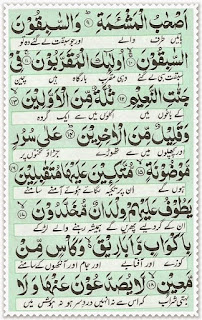 اَصْحٰبُ الْمَشْـَٔمَةِ ۹ وَالسّٰبِقُوْنَ
بائیں طرف والے اور جو سبقت لے گئے وہ تو
السّٰبِقُوْنَ ۱۰ اُولٰٓئِكَ الْمُقَرَّبُوْنَ ۱۱ فِیْ
سبقت ہی لے گئے وہی مقرب بارگاہ ہیں چین
جَنّٰتِ النَّعِیْمِ ۱۲ ثُلَّةٌ مِّنَ الْاَوَّلِیْنَ ۱۳
کے باغوں میں اگلوں میں سے ایک گروہ
وَقَلِیْلٌ مِّنَ الْاٰخِرِیْنَ ۱۴ عَلٰی سُرُرٍ
اور پچھلوں میں سے تھوڑے جڑاؤ تختوں پر
مَّوْضُوْنَةٍ ۱۵ مُّتَّكِـِٕیْنَ عَلَیْهَا مُتَقٰبِلِیْنَ ۱۶
ہوں گے ان پر تکیہ لگائے ہوئے آمنے سامنے
یَطُوْفُ عَلَیْهِمْ وِلْدَانٌ مُّخَلَّدُوْنَ ۱۷
ان کے گرد لیے پھریں گے ہمیشہ رہنے والے لڑکے
بِاَكْوَابٍ وَّاَبَارِیْقَ وَكَاْسٍ مِّنْ
کوزے اور آفتابے اور جام اور آنکھوں کے سامنے
مَّعِیْنٍ ۱۸ لَّا یُصَدَّعُوْنَ عَنْهَا وَلَا
بہتی شراب کہ اس سے نہ انہیں درد سر ہو نہ ہوش میں